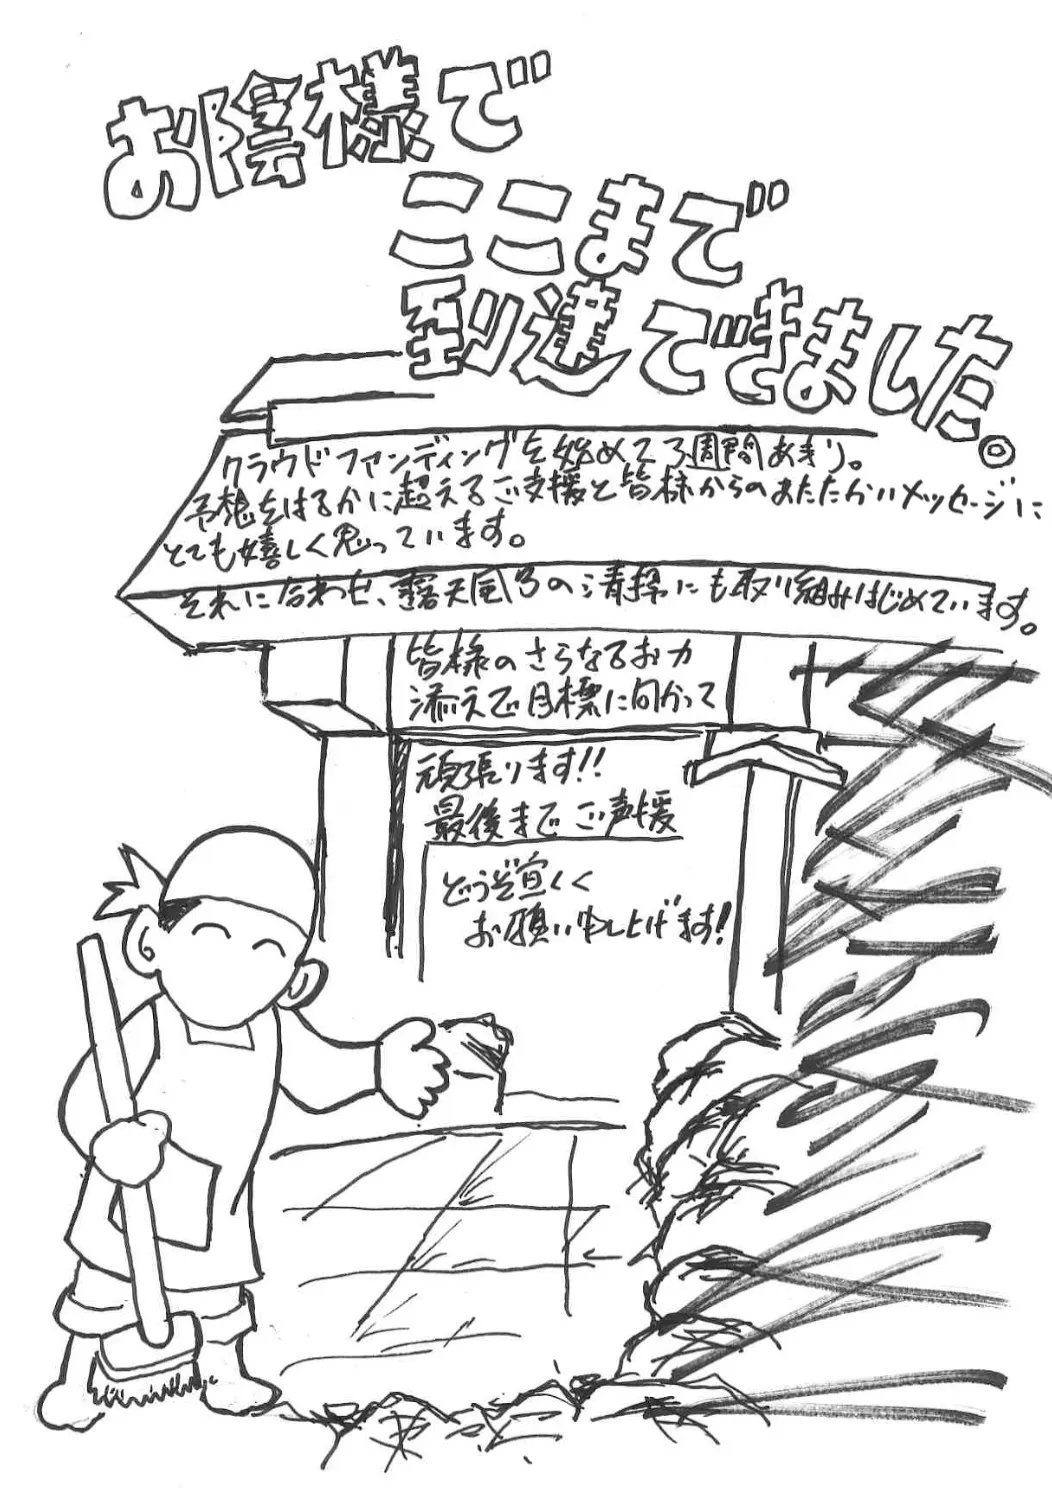 お陰様で
ここまで
到達できました。
クラウドファンディングを始めて3週間あまり。
予想をはるかに超えるご支援と皆様からのあたたかいメッセージに
とても嬉しく思っています。
それに合わせ、露天風呂の清掃にも取り組みはじめています。
皆様のさらなるお力
添えで目標に向かって
頑張ります!!
最後までご声援
どうぞ宜しく
お願い申し上げます!